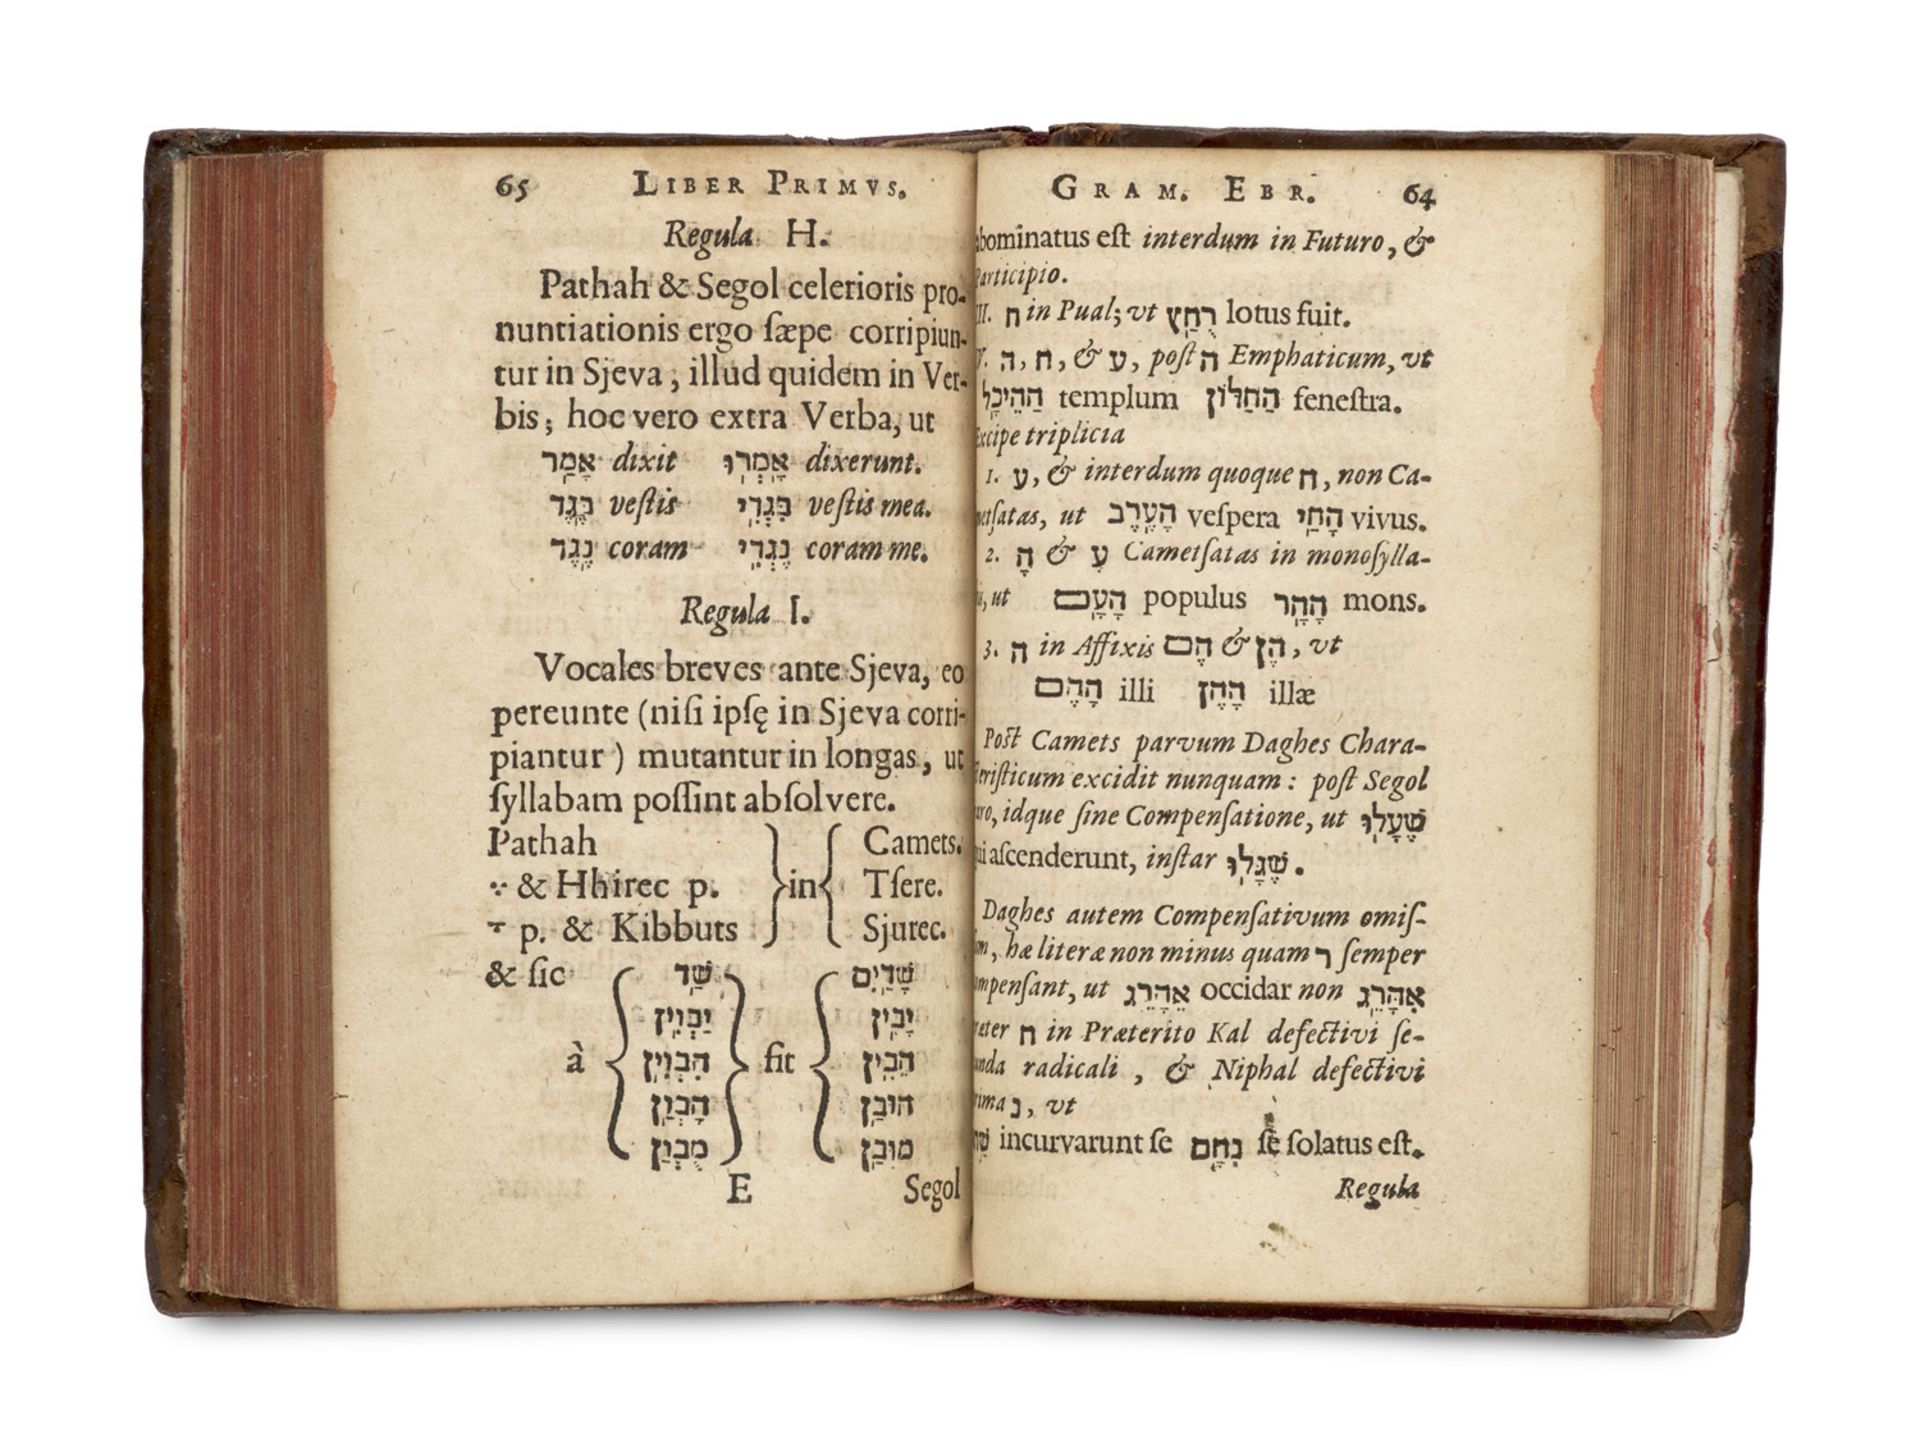 GRAM. EBR. 64
abominatus eſt interdum in Futuro, &
Participio.
III. ח in Pual; vt רֻחַץ lotus fuit.
ה, ח, & ע, poſt הַ Emphaticum, vt
הַהֵיכָל templum הַחַלּוֹן feneſtra.
Excipe triplicia
1. ע, & interdum quoque ח, non Ca-
metſatas, ut הָעֶרֶב veſpera הָחַי vivus.
2. הָ & עָ Cametſatas in monoſylla-
ut הָעָם populus הָהָר mons.
3. ה in Affixis הֶם & הֶן, vt
הָהֶם illi הָהֶן illæ
Poſt Camets parvum Daghes Chara-
cteriſticum excidit nunquam: poſt Segol
raro, idque ſine Compenſatione, ut שֶׁעָלוּ
qui aſcenderunt, inſtar שֶׁגָּלוּ.
Daghes autem Compenſativum omiſ-
hæ literæ non minus quam ר ſemper
compenſant, ut אֵהָרֵג occidar non אִהָּרֵג
præter ח in Præterito Kal defectivi ſe-
cunda radicali, & Niphal defectivi
prima נ, vt
incurvarunt ſe נִחַם ſe ſolatus eſt.
Regula
65 LIBER PRIMVS.
Regula H.
Pathah & Segol celerioris pro-
nuntiationis ergo ſæpe corripiun-
tur in Sjeva, illud quidem in Ver-
bis; hoc vero extra Verba, ut
אָמַר dixit אָמְרוּ dixerunt.
בֶּגֶד veſtis בִּגְדִי veſtis mea.
נֶגֶד coram נֶגְדִי coram me.
Regula I.
Vocales breves ante Sjeva, eo
pereunte (niſi ipſę in Sjeva corri-
piantur) mutantur in longas, ut
ſyllabam poſſint abſolvere.
Pathah Camets.
ֶ & Hhirec p. in Tſere.
ָ p. & Kibbuts Sjurec.
& ſic שַׁד שָׁדַיִם
יַבְוִין יָבִין
à הִבְוִין fit הֵבִין
הָבְוַן הוּבַן
מֻבְוַן מוּבַן
E Segol